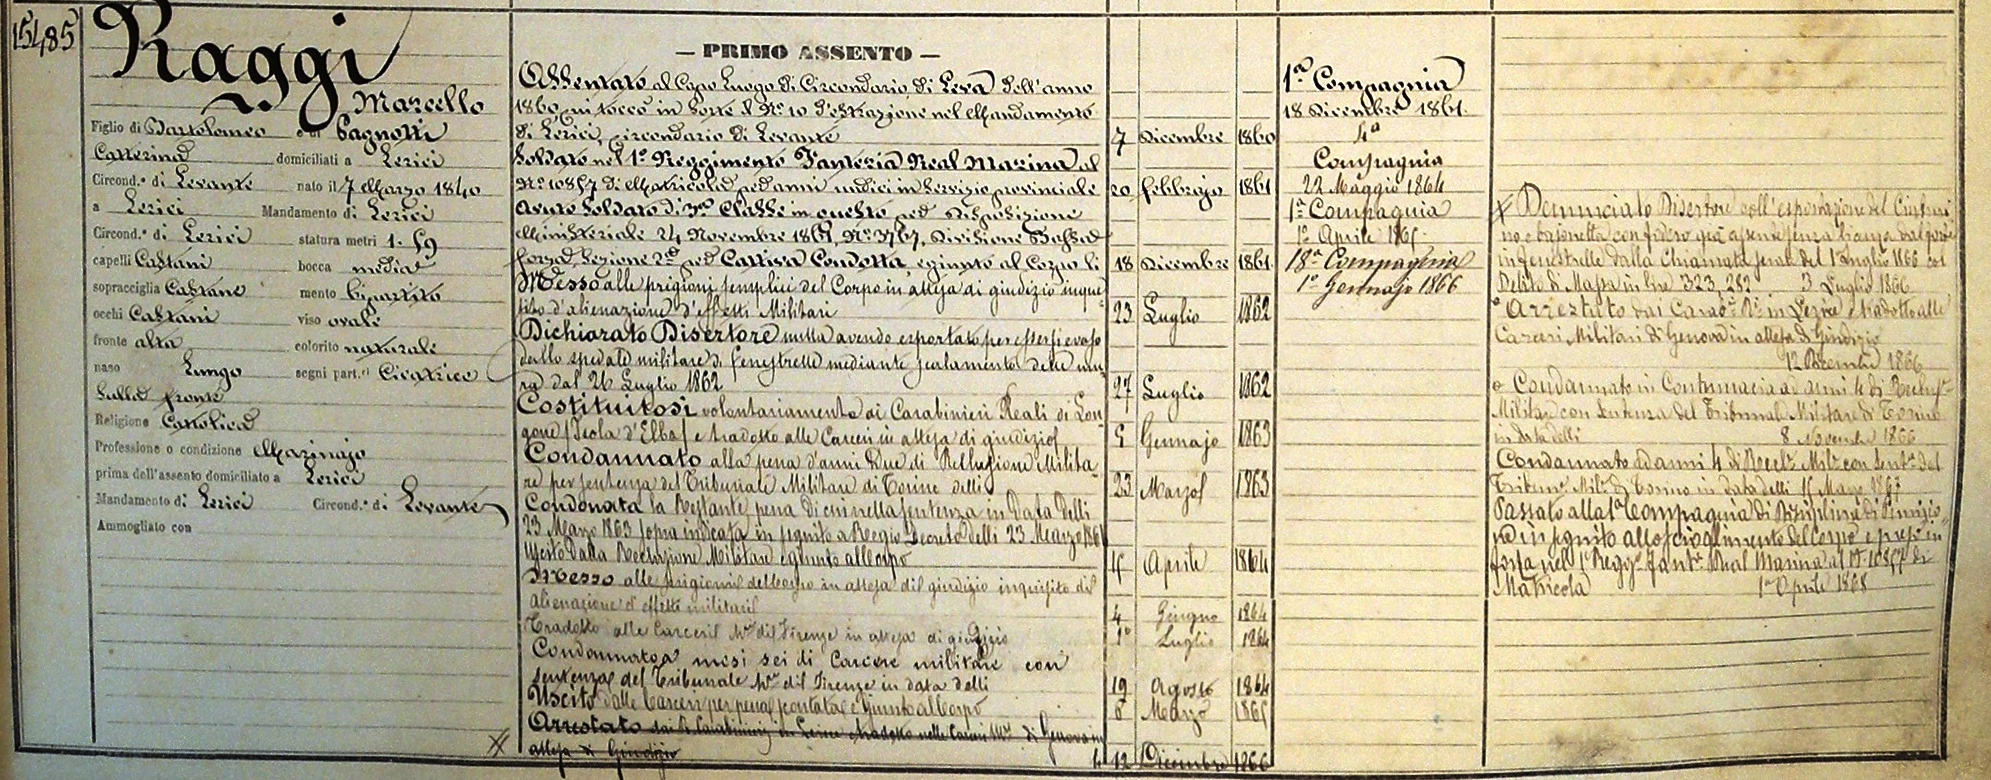 15485
Raggi
Marcello
Figlio di Bartolomeo e di Cagnotti
Catterina domiciliati a Lerici
Circond.º di Levante nato il 7 Marzo 1840
a Lerici Mandamento di Lerici
Circond.º di Lerici statura metri 1.59
capelli Castani bocca media
sopracciglia Castane mento bipartito
occhi Castani viso ovale
fronte alta colorito naturale
naso Lungo segni part.i Cicatrice
sulla fronte
Religione Cattolica
Professione o condizione Marinajo
prima dell'assento domiciliato a Lerici
Mandamento di Lerici Circond.º di Levante
Ammogliato con
— PRIMO ASSENTO —
Assentato al Capo Luogo di Circondario di Leva dell'anno
1860, cui toccò in sorte il Nº 10 d'estrazione nel Mandamento
di Lerici, Circondario di Levante 7 Dicembre 1860
Soldato nel 1º Reggimento Fanteria Real Marina al
Nº 10857 di Matricola per anni undici in servizio provinciale 20 febbrajo 1861
Avuto Soldato di 3ª Classe in questo per Disposizione
Ministeriale 24 Novembre 1861, Nº 3767, Divisione Bassa
forza Sezione 2ª per Cattiva Condotta, e giunto al Corpo li 18 Dicembre 1861
Messo alle prigioni semplici del Corpo in attesa di giudizio inqui-
sito d'alienazione d'effetti Militari 23 Luglio 1862
Dichiarato Disertore nulla avendo esportato per essersi evaso
dallo spedale militare di fenestrelle mediante scalamento delle mu-
ra dal 26 Luglio 1862 27 Luglio 1862
Costituitosi volontariamente ai Carabinieri Reali di Lon-
gone (Isola d'Elba) e tradotto alle Carceri in attesa di giudizio 5 Gennajo 1863
Condannato alla pena d'anni Due di Reclusione Milita-
re per sentenza del Tribunale Militare di Torino delli 23 Marzo 1863
Condonata la Restante pena di cui nella sentenza in Data Delli
23 Marzo 1863 sopra indicata in seguito a Regio Decreto delli 23 Marzo 1864
Uscito Dalla Reclusione Militare e giunto al Corpo 15 Aprile 1864
Messo alle prigioni del Corpo in attesa di giudizio inquisito di
alienazione d'effetti militari 4 Giugno 1864
Tradotto alle Carceri Mri di Firenze in attesa di giudizio 1º Luglio 1864
Condannato a mesi sei di Carcere militare con
sentenza del Tribunale Mre di Firenze in data delli 19 Agosto 1864
Uscito dalle Carceri per pena scontata e Giunto al Corpo 6 Marzo 1865
Arrestato dai R. Carabinieri in Lerici tradotto nelle Carceri Mri di Genova in
attesa di Giudizio li 12 Dicembre 1866
1ª Compagnia
18 Dicembre 1861
4ª
Compagnia
22 Maggio 1864
1ª Compagnia
1º Aprile 1865
18ª Compagnia
1º Gennajo 1866
Denunciato Disertore coll'esportazione del
e bajonetta con fodero già assente senza licenza dal forte
in fenestrelle dalla Chiamata serale del 1º Luglio 1866 col
Debito di Massa in lire 323, 282 3 Luglio 1866
Arrestato dai Carabri Rli in Lerici tradotto alle
Carceri Militari di Genova in attesa di Giudizio
12 Dicembre 1866
Condannato in Contumacia ad anni 4 di Reclusne
Militare con sentenza del Tribunal Militare di Torino
in data delli 8 Novembre 1866
Condannato ad anni 4 di Reclne Milre con Sentza del
Tribune Milre di Torino in data delli 15 Marzo 1867
Passato alla 1ª Compagnia di Disciplina di Punizio-
ne in seguito allo scioglimento del Corpo e preso in
forza nel 1º Reggto Fantria Real Marina al Nº 10857 di
Matricola 1º Aprile 1868